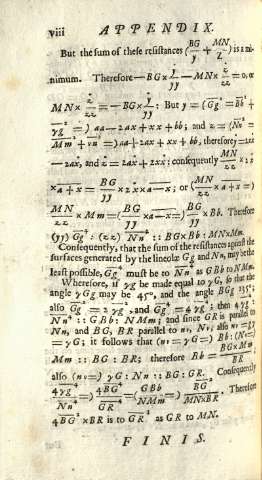 viii APPENDIX.
But the sum of these resistances (BG/y + MN/z) is a mi-
nimum. Therefore —BG× ẏ/yy —MN× ż/zz = 0, or
MN× ż/zz = —BG× ẏ/yy : But y = (Gg² = Bb² +
γg² =) aa—2ax+xx+bb; and z = (Nn² =
Mm² + νn² =) aa+2ax+xx+bb, therefore ẏ=2xẋ
—2aẋ, and ż = 2aẋ + 2xẋ; consequently MN/zz × 2ẋ
×a+x = BG/yy × 2ẋ×a—x; or (MN/zz ×a+x =)
MN/zz × Mm = (BG/yy ×a—x =) BG/yy × Bb. Therefore
(yy) Gg⁴ : (zz) Nn⁴ :: BG×Bb : MN×Mm.
Consequently, that the sum of the resistances against the
surfaces generated by the lineolæ Gg and Nn, may be the
least possible, Gg⁴ must be to Nn⁴ as GBb to NMm.
Wherefore, if γg be made equal to γG, so that the
angle γGg may be 45°, and the angle BGg 135°;
also Gg² = 2γg², and Gg⁴ = 4γg⁴; then 4γg⁴ :
Nn⁴ :: GBb : NMm; and since GR is parallel to
Nn, and BG, BR parallel to nν, Nν; also nν = γg
= γG; it follows that (nν = γG =) Bb : (Nν =)
Mm :: BG : BR; therefore Bb = Mm×BG/BR;
also (nν =) γG : Nn :: BG : GR. Consequently
4γg⁴/Nn⁴ = 4BG⁴/GR⁴ = (GBb/NMm =) BG²/MN×BR. Therefore
4BG²×BR is to GR³ as GR to MN.
FINIS.